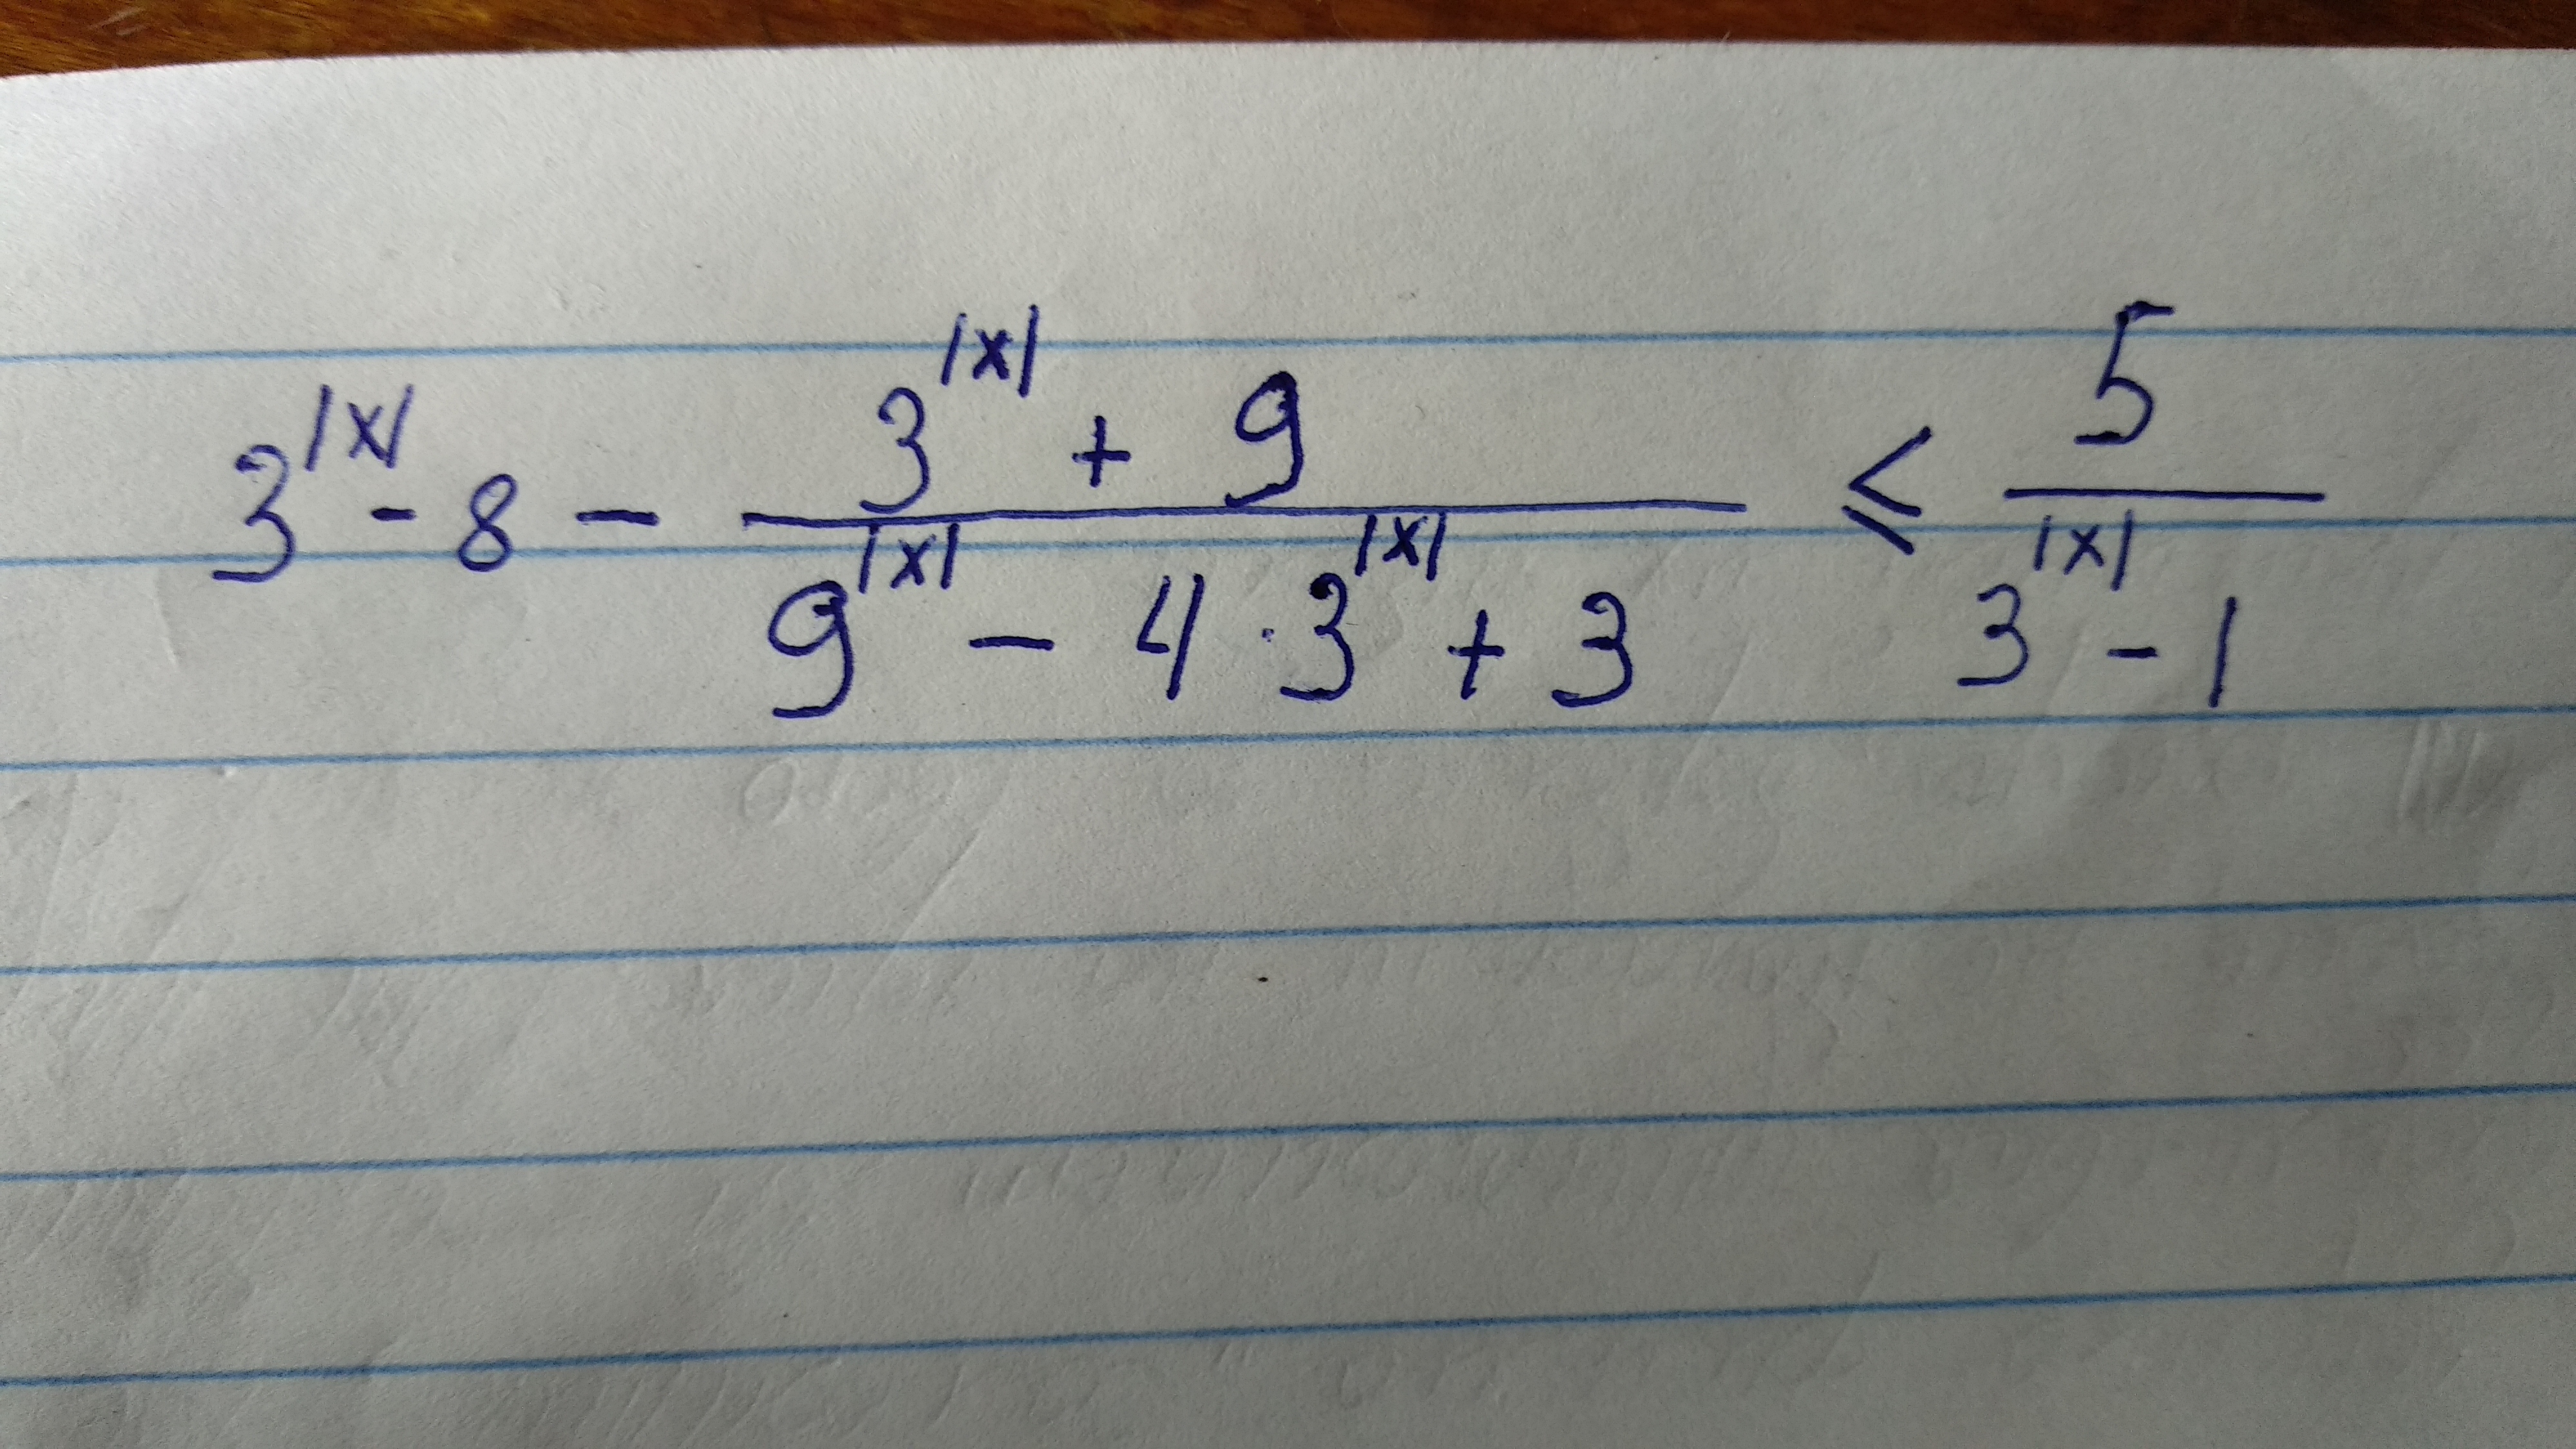 3^|x| - 8 - (3^|x| + 9)/(9^|x| - 4·3^|x| + 3) ≤ 5/(3^|x| - 1)